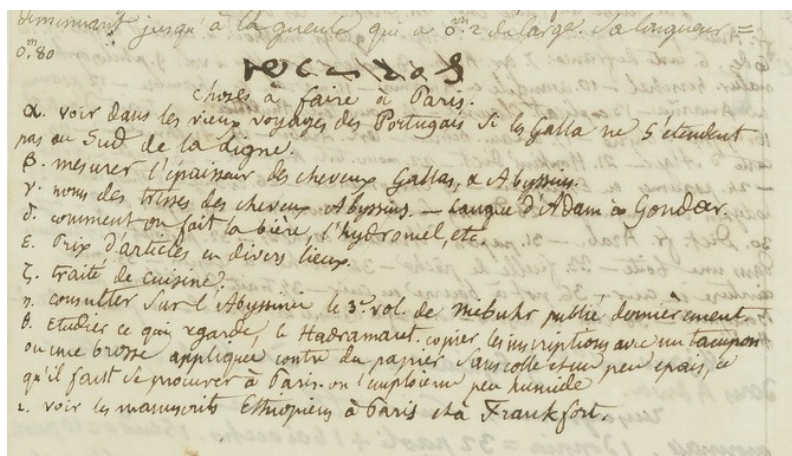 diminuant jusqu'à la gueule qui a 0.m2 de large. Sa longueur =
0.m80
choses à faire à Paris.
α. voir dans les vieux voyages des Portugais si les Galla ne s'étendent
pas au Sud de la Ligne.
β. mesurer l'épaisseur des cheveux Gallas, & Abyssins.
γ. noms des tresses des cheveux Abyssins. — Langue d'Adam à Gondar.
δ. comment on fait la bière, l'hydromel, etc.
ε. Prix d'articles en divers lieux.
ζ. traité de cuisine.
η. consulter sur l'Abyssinie le 3e vol. de Niebuhr publié dernièrement.
θ. Etudier ce qui regarde, le Hadramaut. copier les inscriptions avec un tampon
ou une brosse appliquer contre du papier sans colle et un peu épais, ce
qu'il faut se procurer à Paris. on l'emploiera peu humide
ι. voir les manuscrits Ethiopiens à Paris et à Frankfort.